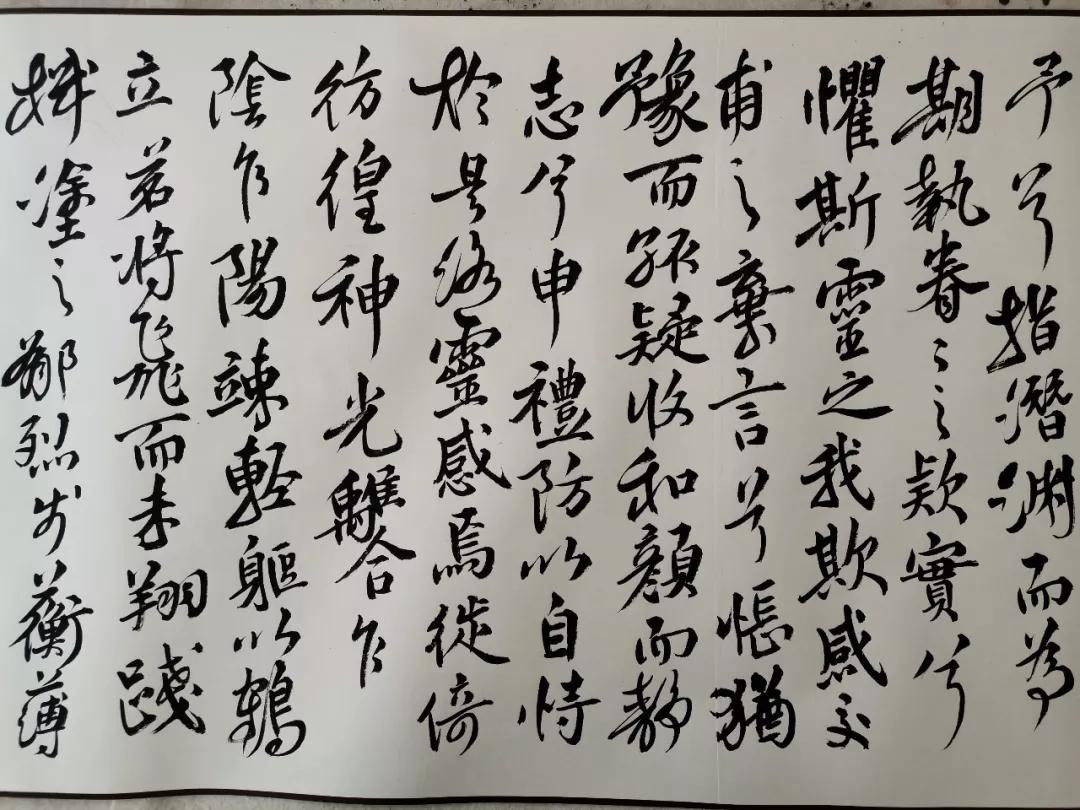 予兮指潛淵而為
期執眷〻之款實兮
懼斯靈之我欺感交
甫之棄言兮悵猶
豫而狐疑收和顏而靜
志兮申禮防以自持
於是洛靈感焉徙倚
彷徨神光離合乍
陰乍陽竦輕軀以鶴
立若將飛而未翔踐
椒塗之郁烈步蘅薄